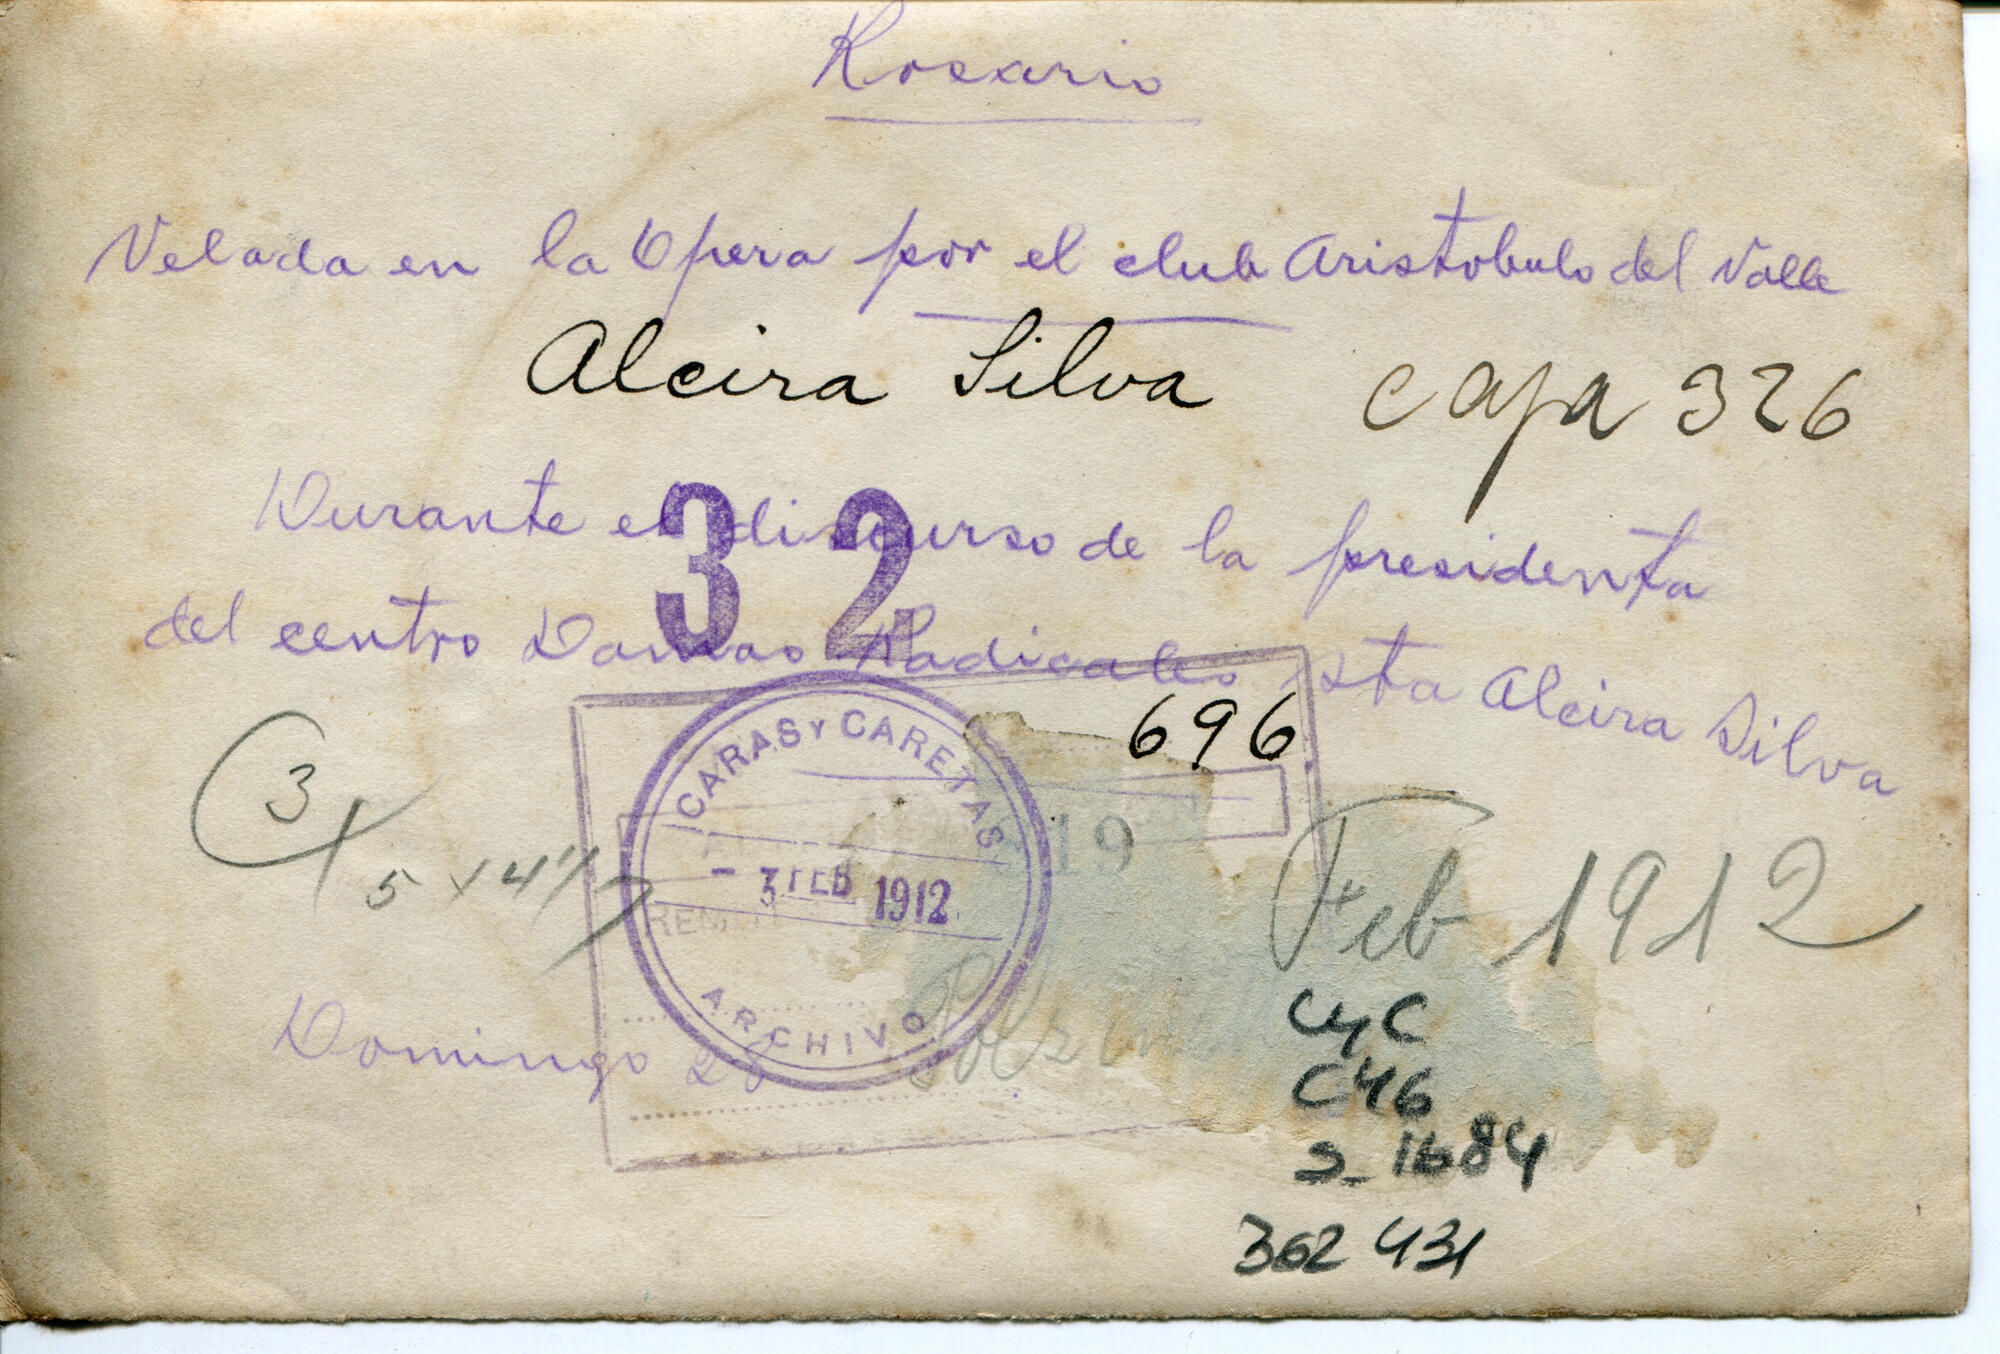 Rosario
Velada en la Opera por el club Aristobulo del Valle
Alcira Silva
Capa 326
Durante el discurso de la presidenta
32
del centro Damas Radicales sta Alcira Silva
696
CARAS Y CARETAS
3
19
- 3 FEB 1912
5 x 14
Feb 1912
ARCHIVO
Domingo 28
CyC
C46
S_1684
362 431